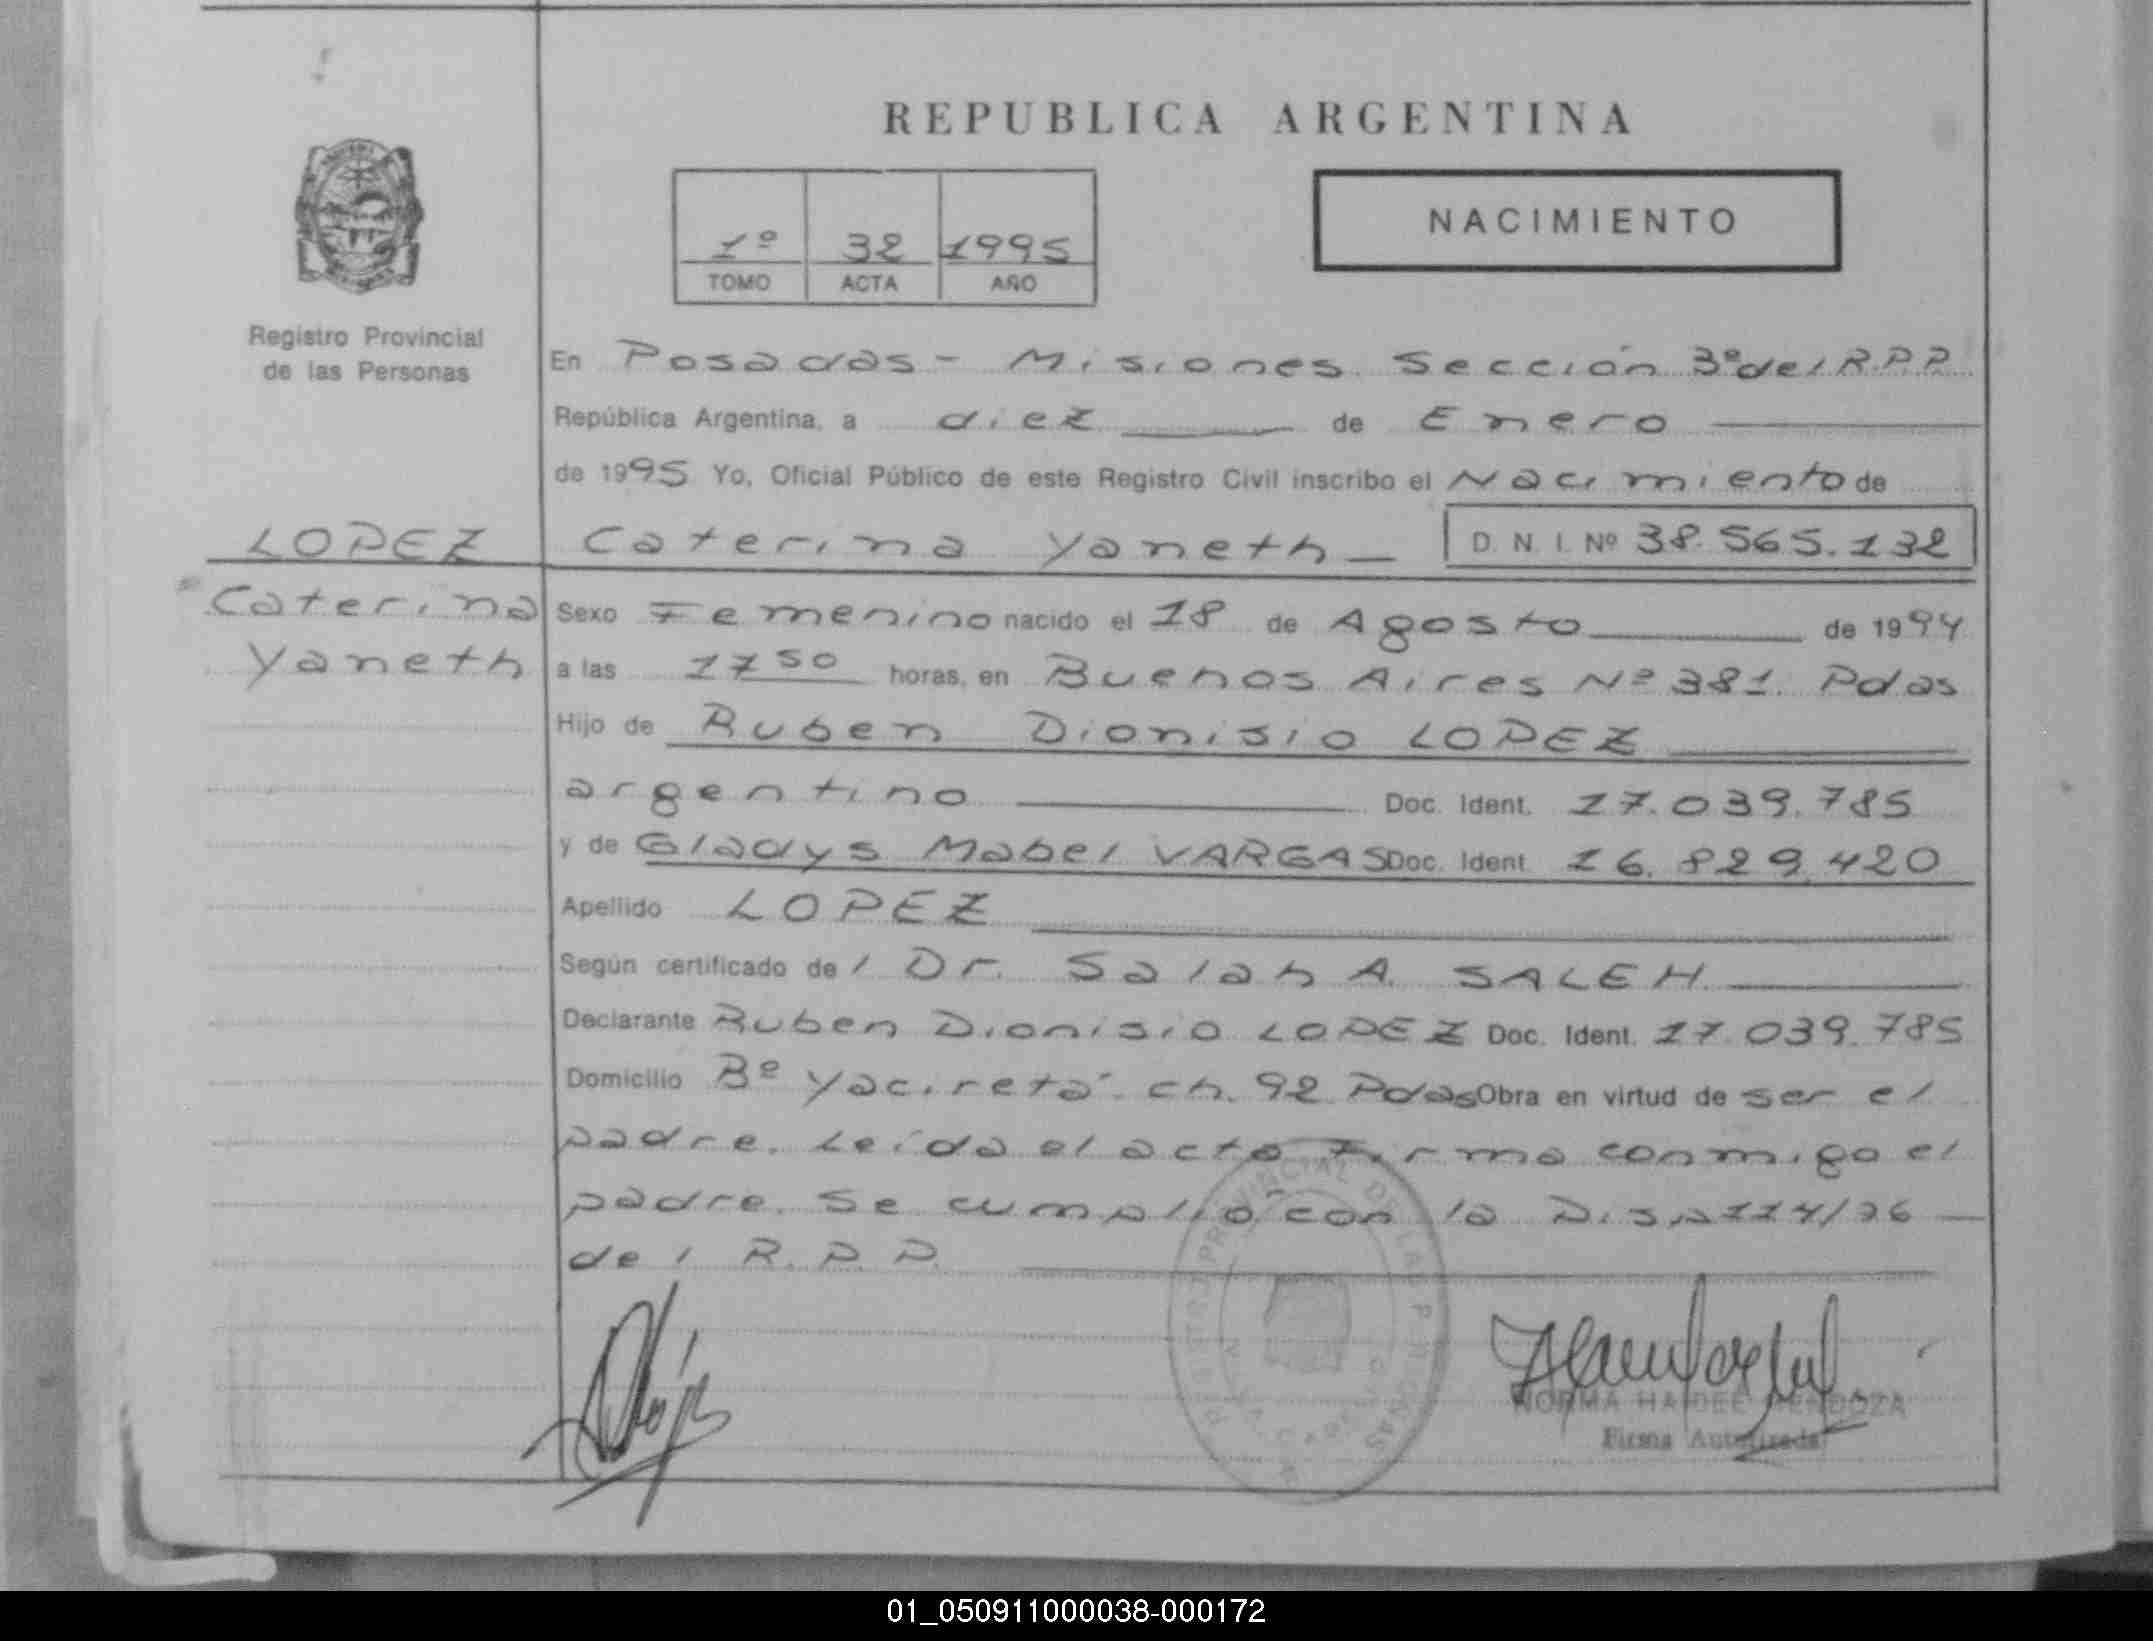 REPUBLICA ARGENTINA
1º 32 1995
TOMO ACTA AÑO
NACIMIENTO
Registro Provincial
de las Personas
En Posadas - Misiones Sección 3º del R.P.P.
República Argentina, a diez de Enero
de 1995 Yo, Oficial Público de este Registro Civil inscribo el Nacimiento de
LOPEZ Caterina Yaneth D. N. I. Nº 38.565.132
Caterina Sexo Femenino nacido el 18 de Agosto de 1994
Yaneth a las 17 50 horas, en Buenos Aires Nº 381. Pdas
Hijo de Ruben Dionisio LOPEZ
argentino Doc. Ident. 17.039.785
y de Gladys Mabel VARGAS Doc. Ident. 16.829.420
Apellido LOPEZ
Según certificado del Dr. Salah A. SALEH
Declarante Ruben Dionisio LOPEZ Doc. Ident. 17.039.785
Domicilio Bº Yaciretá - ch. 92 Pdas Obra en virtud de ser el
padre. Leída el acta firma conmigo el
padre. Se cumplió con la Disp 114/
del R.P.P.
REGISTRO PROVINCIAL DE LAS PERSONAS
NORMA HAIDEE MENDOZA
Firma Autorizada
01_050911000038-000172